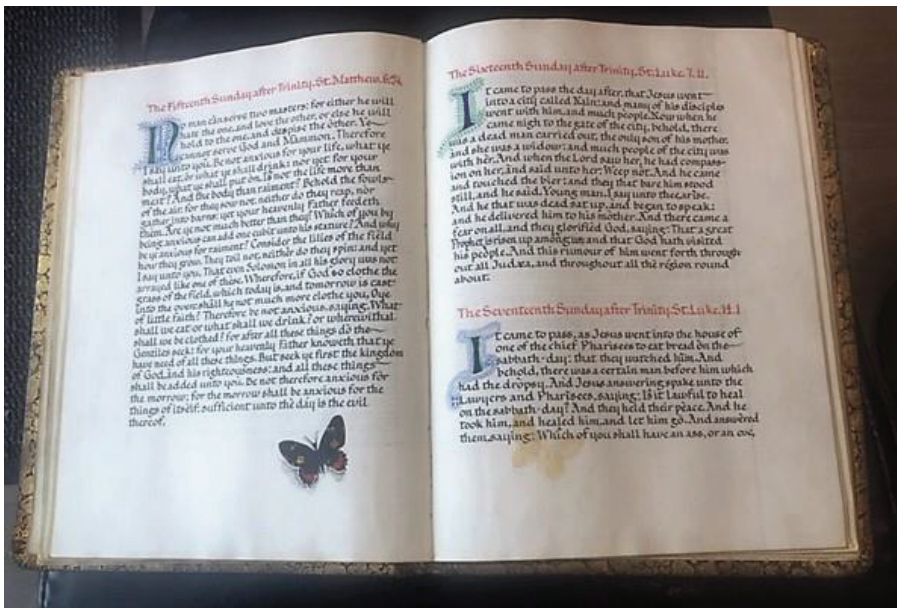 The Fifteenth Sunday after Trinity. St. Matthew. 6:24.
No man can serve two masters: for either he will
hate the one, and love the other, or else he will
hold to the one, and despise the other. Ye
cannot serve God and Mammon. Therefore
I say unto you. Be not anxious for your life, what ye
shall eat, or what ye shall drink; nor yet for your
body, what ye shall put on. Is not the life more than
meat? And the body than raiment? Behold the fowls
of the air; for they sow not, neither do they reap, nor
gather into barns; yet your heavenly Father feedeth
them. Are ye not much better than they? Which of you by
being anxious can add one cubit unto his stature? And why
be ye anxious for raiment? Consider the lilies of the field
how they grow. They toil not, neither do they spin: and yet
I say unto you. That even Solomon in all his glory was not
arrayed like one of these. Wherefore, if God so clothe the
grass of the field, which today is, and tomorrow is cast
into the oven: shall he not much more clothe you, O ye
of little faith? Therefore be not anxious, saying. What
shall we eat or what shall we drink? or wherewithal
shall we be clothed? for after all these things do the
Gentiles seek: for your heavenly Father knoweth that ye
have need of all these things. But seek ye first the kingdom
of God, and his righteousness: and all these things
shall be added unto you. Be not therefore anxious for
the morrow; for the morrow shall be anxious for the
things of itself: sufficient unto the day is the evil
thereof.
The Sixteenth Sunday after Trinity. St. Luke. 7. 11.
It came to pass the day after, that Jesus went
into a city called Nain: and many of his disciples
went with him, and much people. Now when he
came nigh to the gate of the city, behold, there
was a dead man carried out, the only son of his mother,
and she was a widow: and much people of the city was
with her. And when the Lord saw her, he had compass-
ion on her, and said unto her; Weep not. And he came
and touched the bier: and they that bare him stood
still, and he said, Young man, I say unto thee, arise.
And he that was dead sat up, and began to speak:
and he delivered him to his mother. And there came a
fear on all, and they glorified God, saying: That a great
Prophet is risen up among us: and that God hath visited
his people. And this rumour of him went forth through
out all Judæa, and throughout all the région round
about.
The Seventeenth Sunday after Trinity. St. Luke. 14. 1
It came to pass, as Jesus went into the house of
one of the chief Pharisees to eat bread on the
sabbath-day: that they watched him. And
behold, there was a certain man before him which
had the dropsy. And Jesus answering spake unto the
Lawyers and Pharisees, saying: Is it lawful to heal
on the sabbath-day? And they held their peace. And he
took him, and healed him, and let him go. And answered
them, saying: Which of you shall have an ass, or an oxe,